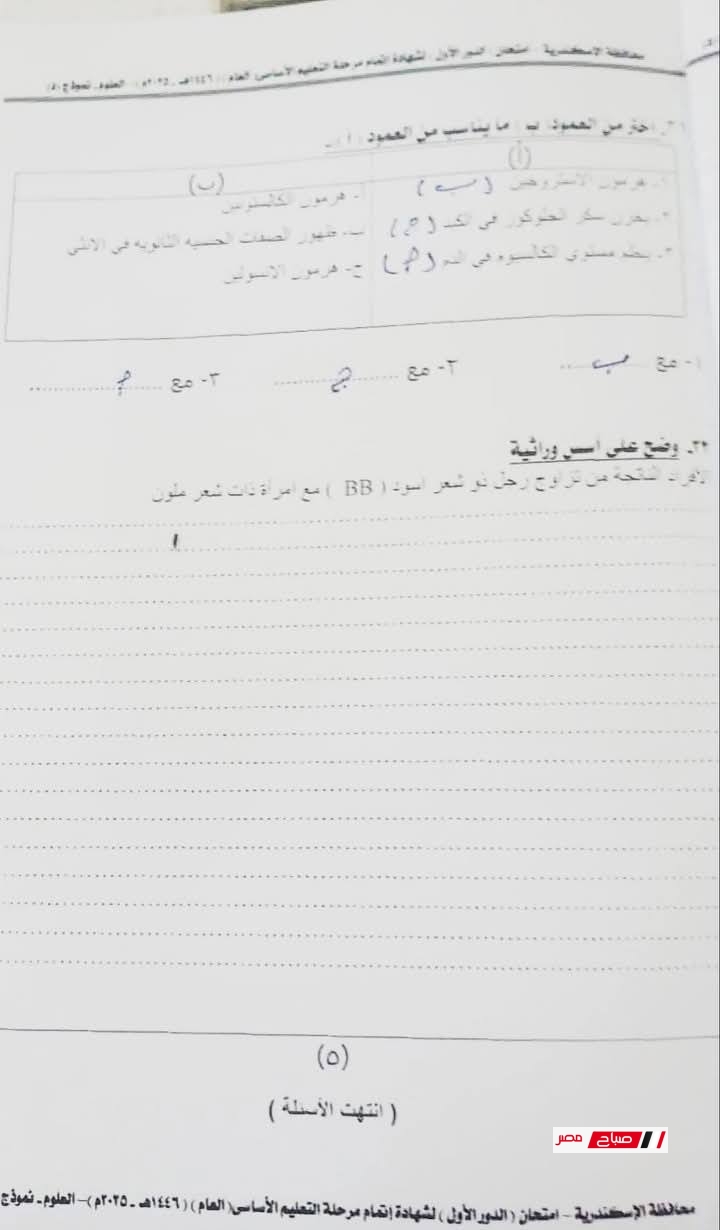 محافظة الإسكندرية - امتحان (الدور الأول) لشهادة إتمام مرحلة التعليم الأساسى (العام) (١٤٤٦هـ - ٢٠٢٥م) - العلوم - نموذج (٥)
اختر من العمود (ب) ما يناسب من العمود (أ) :-
(أ)
(ب)
١- هرمون الاستروجين (ب)
أ- هرمون الكالسيتونين
٢- يخزن سكر الجلوكوز في الكبد (ج)
ب- ظهور الصفات الجنسيه الثانويه في الانثى
٣- ينظم مستوى الكالسيوم في الدم (أ)
ج- هرمون الانسولين
١- مع ب
٢- مع ج
٣- مع أ
٣٢- وضح على أسس وراثية
الأفراد الناتجة من تزاوج رجل ذو شعر اسود (BB) مع امرأة ذات شعر ملون
(٥)
(انتهت الأسئلة)
صباح مصر
محافظة الإسكندرية - امتحان (الدور الأول) لشهادة إتمام مرحلة التعليم الأساسى (العام) (١٤٤٦هـ - ٢٠٢٥م) - العلوم - نموذج